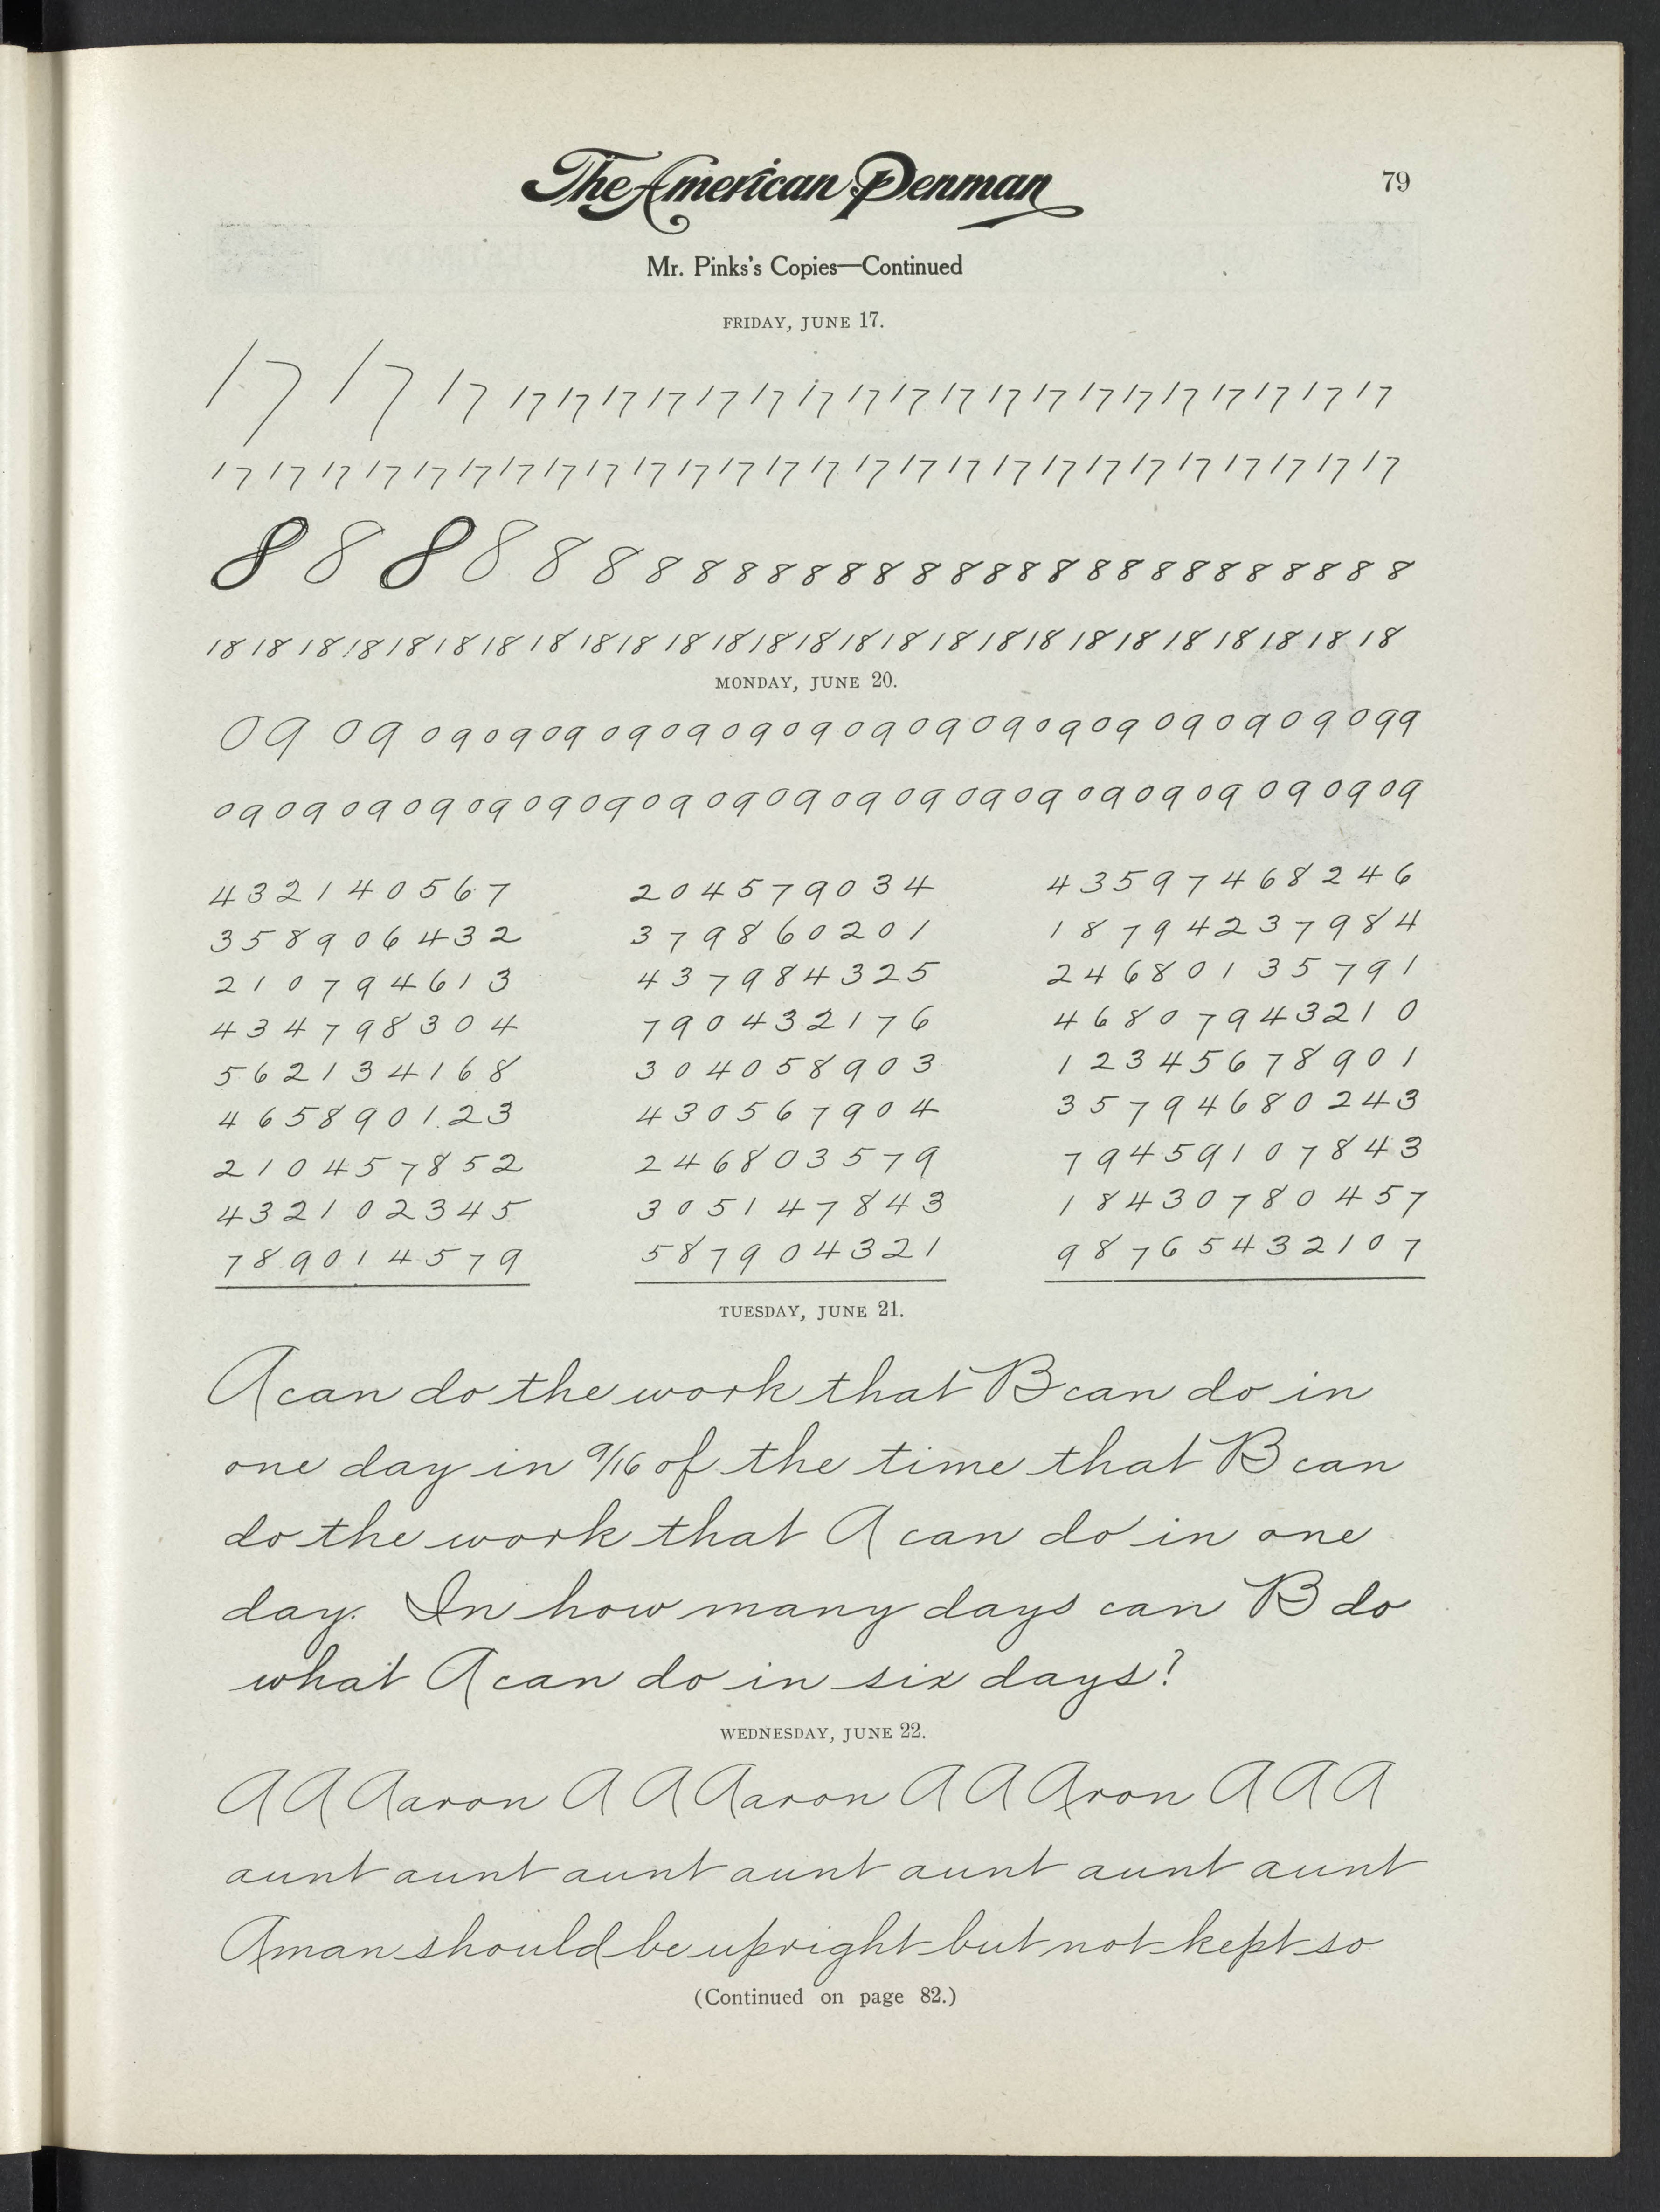 The American Penman
79
Mr. Pinks's Copies—Continued
FRIDAY, JUNE 17.
17 17 17 17 17 17 17 17 17 17 17 17 17 17 17 17 17 17 17 17 17 17
17 17 17 17 17 17 17 17 17 17 17 17 17 17 17 17 17 17 17 17 17 17 17 17 17 17
8 8 8 8 8 8 8 8 8 8 8 8 8 8 8 8 8 8 8 8 8 8 8 8 8 8 8 8
18 18 18 18 18 18 18 18 18 18 18 18 18 18 18 18 18 18 18 18 18 18 18 18 18 18
MONDAY, JUNE 20.
09 09 09 09 09 09 09 09 09 09 09 09 09 09 09 09 09 09 9
09 09 09 09 09 09 09 09 09 09 09 09 09 09 09 09 09 09 09 09
432140567 204579034 43597468246
358906432 379860201 18794237984
210794613 437984325 24680135791
434798304 790432176 46807943210
562134168 304058903 12345678901
465890123 430567904 35794680243
210457852 246803579 79459107843
432102345 305147843 18430780457
789014579 587904321 98765432107
TUESDAY, JUNE 21.
A can do the work that B can do in
one day in 9/16 of the time that B can
do the work that A can do in one
day. In how many days can B do
what A can do in six days?
WEDNESDAY, JUNE 22.
A A Aaron A A Aaron A A Aron A A A
aunt aunt aunt aunt aunt aunt aunt
A man should be upright but not kept so
(Continued on page 82.)